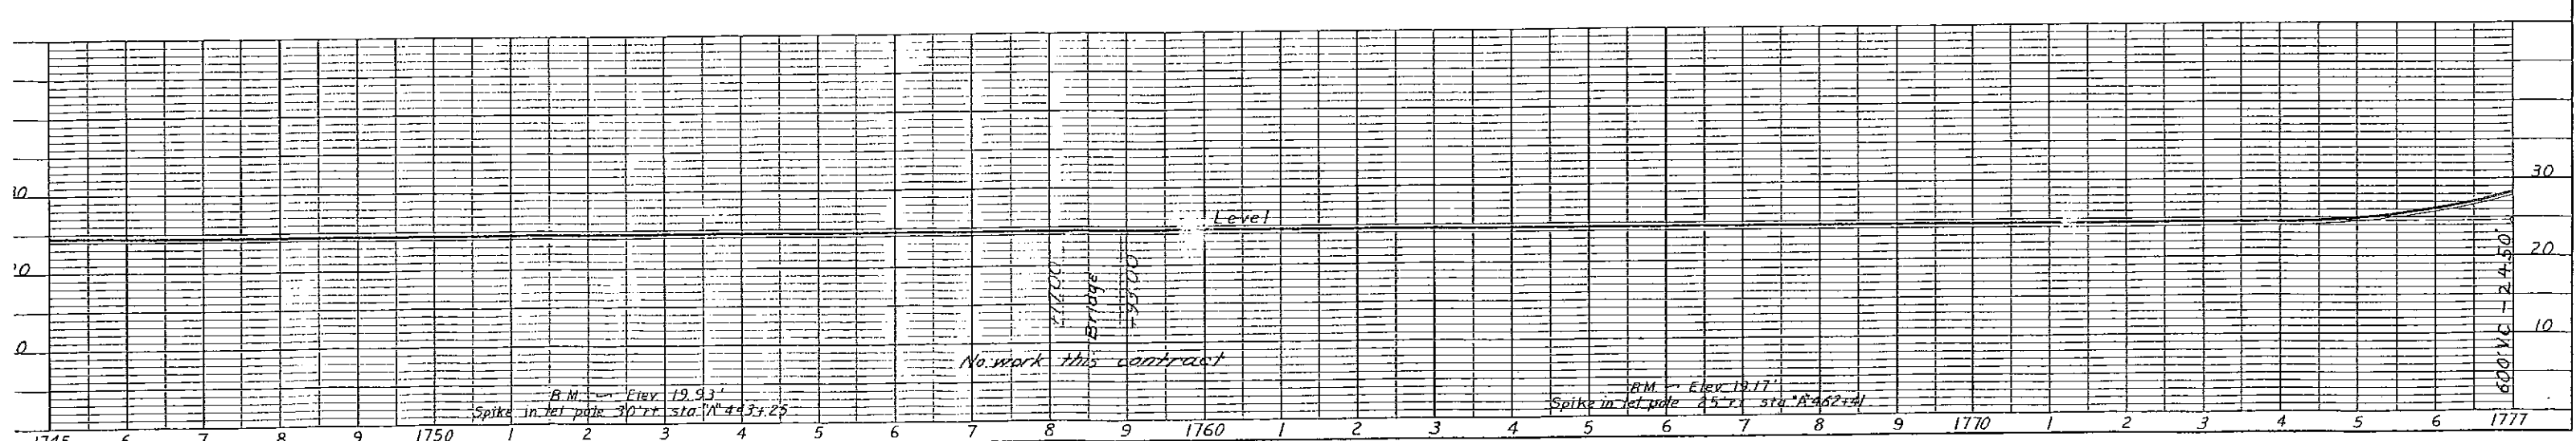 30
Level
20
+17.00
Bridge
+95.00
10
600' V.C. - 24.50'
No work this contract
B.M. - Elev. 19.93'
Spike in tel pole 30' rt sta. "A" 443+25
B.M. - Elev. 19.17'
Spike in tel pole 25' rt sta. "A" 462+41
1745 6 7 8 9 1750 1 2 3 4 5 6 7 8 9 1760 1 2 3 4 5 6 7 8 9 1770 1 2 3 4 5 6 1777